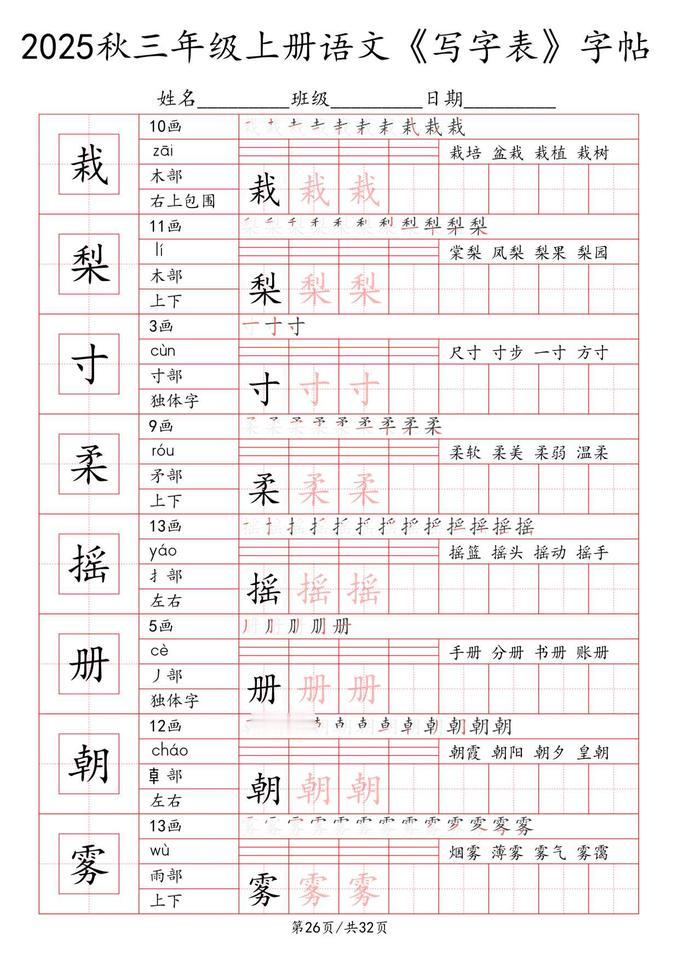 2025秋三年级上册语文《写字表》字帖
姓名_________班级_________日期_________
栽
10画
zāi
栽培 盆栽 栽植 栽树
木部
右上包围
栽 栽 栽
梨
11画
lí
棠梨 凤梨 梨果 梨园
木部
上下
梨 梨 梨
寸
3画
一 寸 寸
cùn
尺寸 寸步 一寸 方寸
寸部
独体字
寸 寸 寸
柔
9画
róu
柔软 柔美 柔弱 温柔
矛部
上下
柔 柔 柔
摇
13画
yáo
摇篮 摇头 摇动 摇手
扌部
左右
摇 摇 摇
册
5画
cè
手册 分册 书册 账册
丿部
独体字
册 册 册
朝
12画
cháo
朝霞 朝阳 朝夕 皇朝
左右
朝 朝 朝
雾
13画
wù
烟雾 薄雾 雾气 雾霭
雨部
上下
雾 雾 雾
第26页/共32页